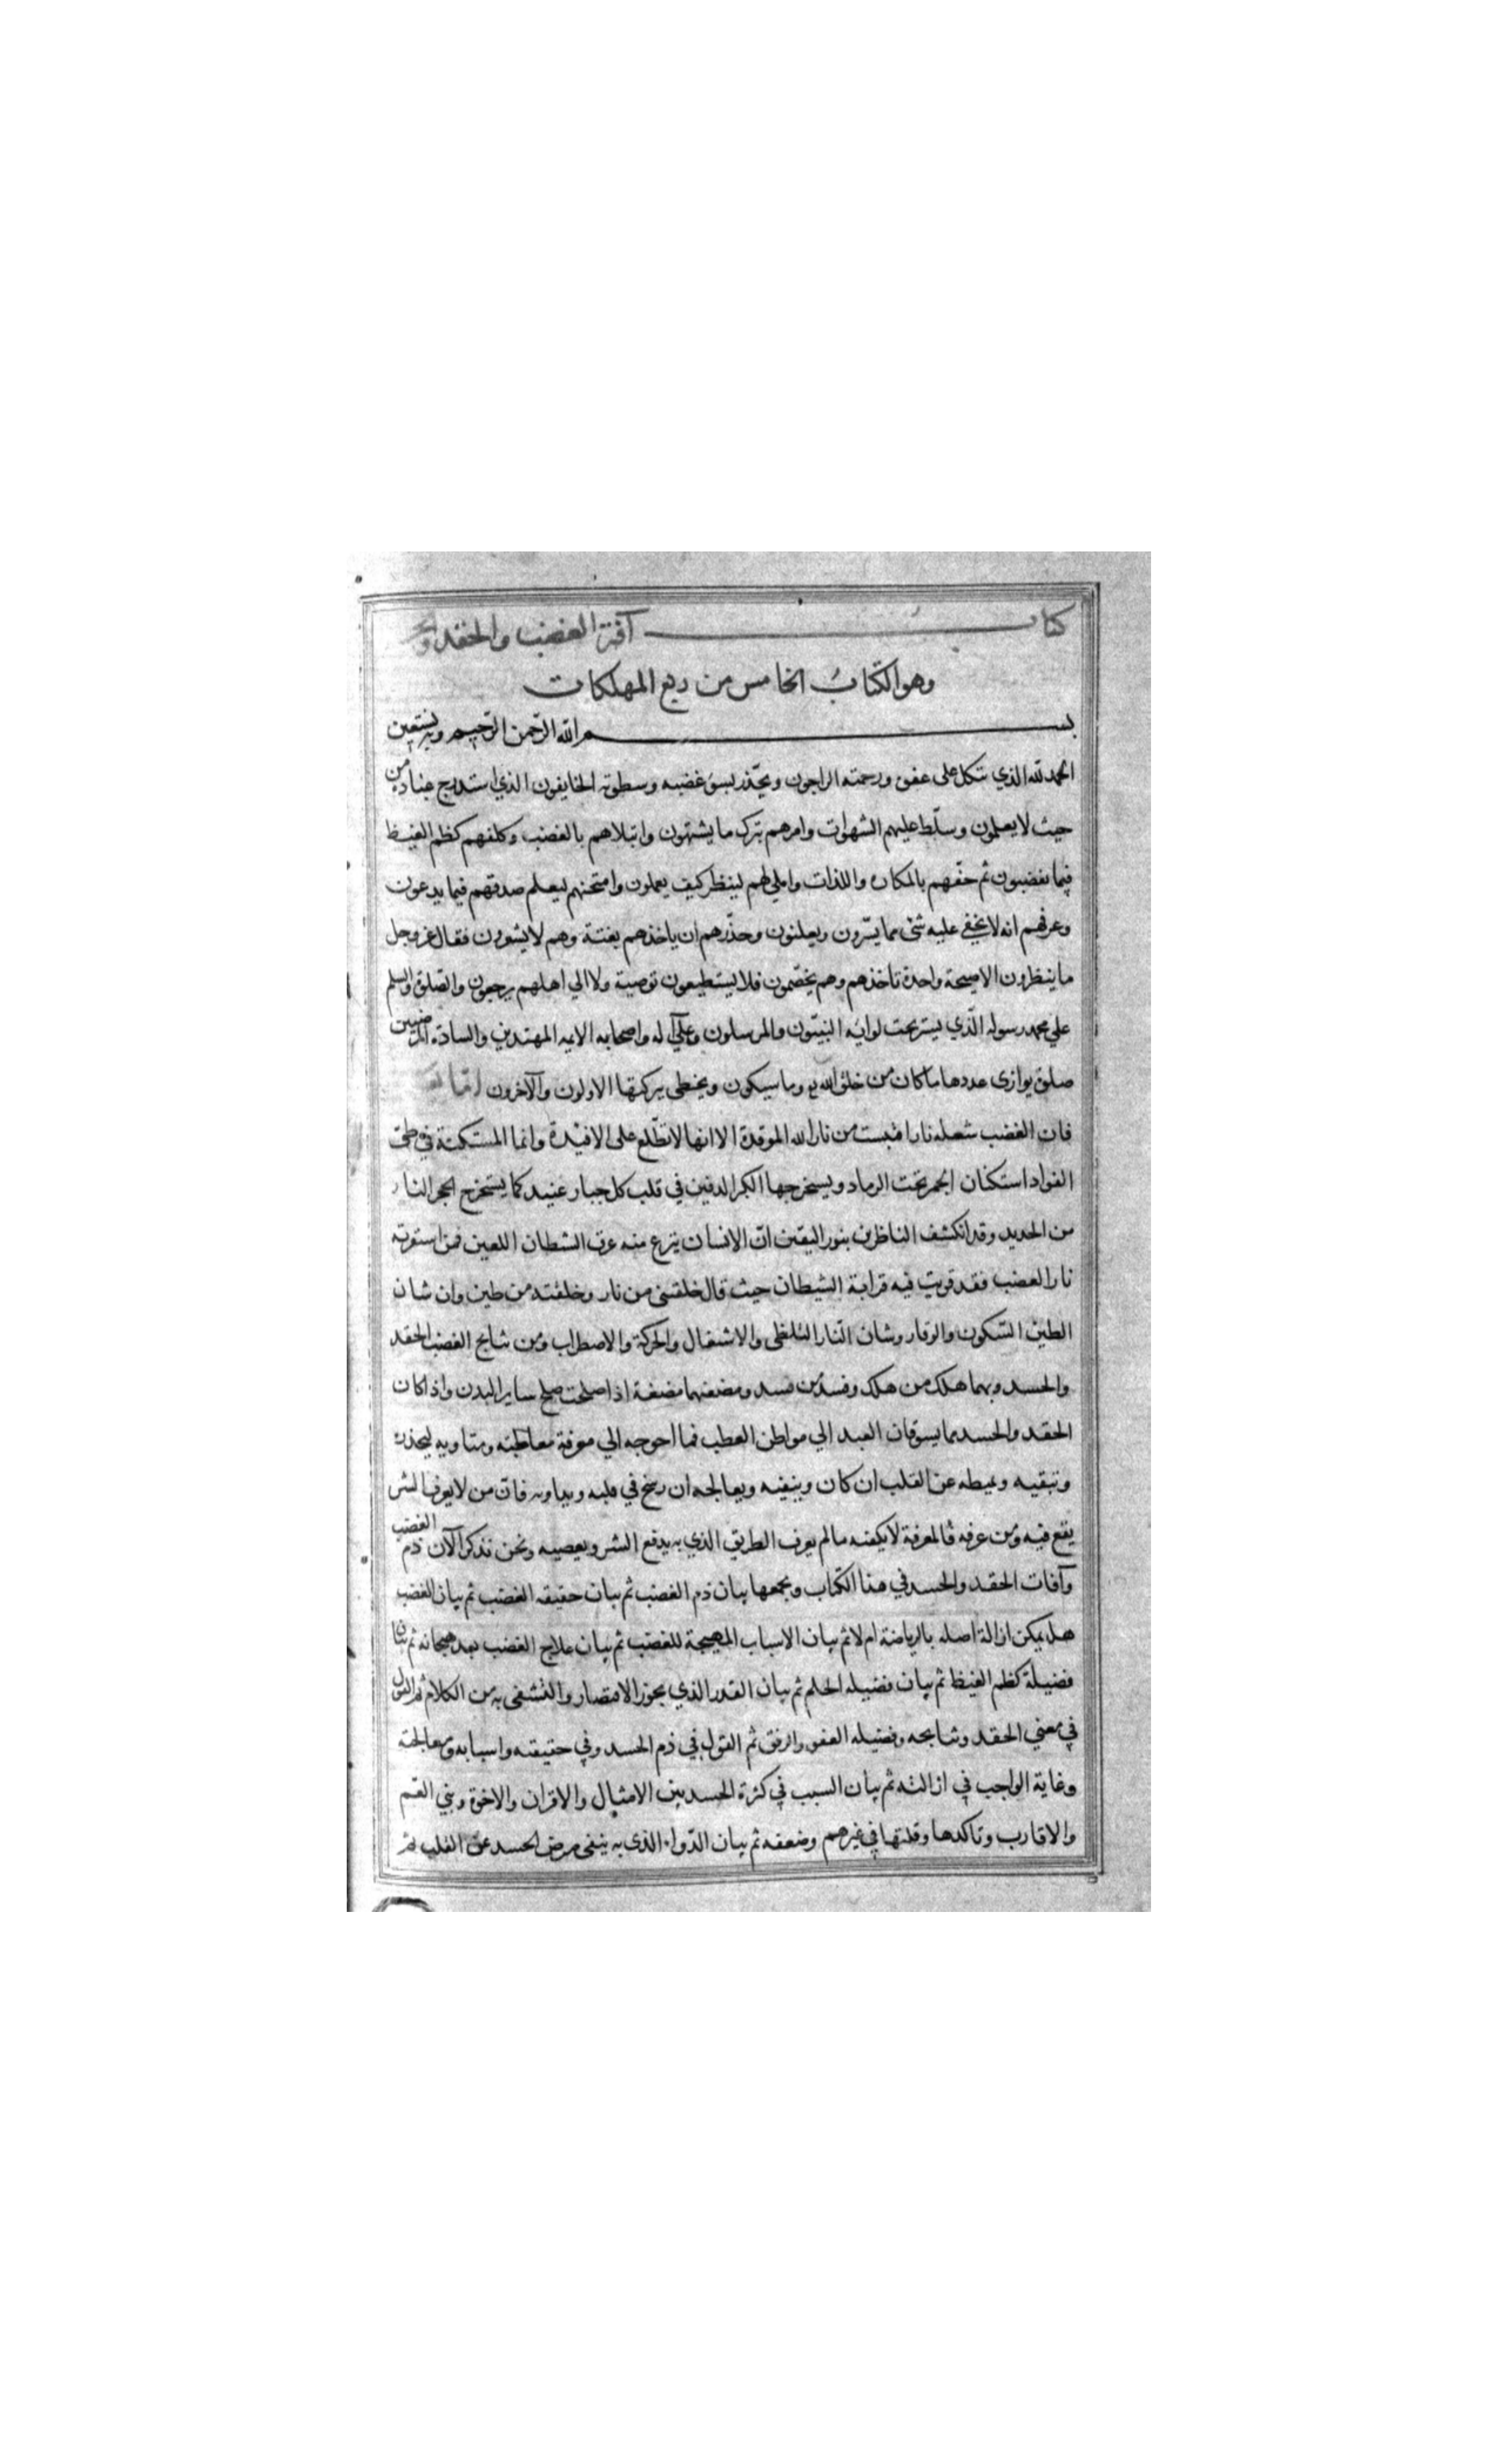 كتاب آفة الغضب والحقد
وهو الكتاب الخامس من ربع المهلكات
بسم الله الرحمن الرحيم وبه نستعين
الحمد لله الذي يتكل على عفوه ورحمته الراجون ويحذر بسو غضبه وسطوته الخايفون الذي استدرج عباده من
حيث لا يعلمون وسلط عليهم الشهوات وامرهم بترك ما يشتهون وابتلاهم بالغضب وكلفهم كظم الغيظ
فيما يغضبون ثم حفهم بالمكاره واللذات واملي لهم لينظر كيف يعملون وامتحنهم ليعلم صدقهم فيما يدعون
وعرفهم انه لا يخفي عليه شي مما يسرون ويعلنون وحذرهم ان ياخذهم بغتة وهم لا يشعرون فقال عز وجل
ما ينظرون الا صيحة واحدة تاخذهم وهم يخصمون فلا يستطيعون توصية ولا الي اهلهم يرجعون والصلوة والسلم
علي محمد رسوله الذي يسير تحت لوائه النبيون والمرسلون وعلى آله واصحابه الايمه المهتدين والسادة المرضيين
صلوة يوازى عددها ما كان من خلق الله وما سيكون ويحظى ببركتها الاولون والآخرون اما بعد
فان الغضب شعله نار اقتبست من نار الله الموقدة الا انها لا تطلع على الافئدة وانما المستكنة في طي
الفواد استكنان الجمر تحت الرماد ويستخرجها الكبر الدفين في قلب كل جبار عنيد كما يستخرج الحجر النار
من الحديد وقد انكشف للناظرين بنور اليقين ان الانسان ينزع منه عرق الشطان اللعين فمن استفزته
نار الغضب فقد قويت فيه قرابة الشيطان حيث قال خلقتني من نار وخلقته من طين وان شان
الطين السكون والوقار وشان النار التلظى والاشتعال والحركة والاضطراب ومن نتايج الغضب الحقد
والحسد وبهما هلك من هلك وفسد من فسد ومضغتهما مضغة اذا صلحت صلح ساير البدن واذا كان
الحقد والحسد مما يسوقان العبد الي مواطن العطب فما احوجه الي معرفة معاطبه ومتاويه ليحذر
وتبقيه ويميطه عن القلب ان كان وينفيه ويعالجه ان رسخ في قلبه ويداويه فان من لا يعرف الشر
يقع فيه ومن عرفه فالمعرفة لا يكفيه ما لم يعرف الطريق الذي به يدفع الشر ويعصيه ونحن نذكر الآن ذم الغضب
وآفات الحقد والحسد في هذا الكتاب ويجمعها بيان ذم الغضب ثم بيان حقيقه الغضب ثم بيان الغضب
هل يمكن ازالة اصله بالرياضة ام لا ثم بيان الاسباب المهيجة للغضب ثم بيان علاج الغضب بعد هيجانه ثم بيان
فضيلة كظم الغيظ ثم بيان فضيله الحلم ثم بيان القدر الذي يجوز الانتصار والتشفى به من الكلام ثم القول
في معني الحقد ونتايجه وفضيله العفو والرفق ثم القول في ذم الحسد وفي حقيقته واسبابه ومعالجته
وغاية الواجب في ازالته ثم بيان السبب في كثرة الحسد بين الامثال والاقران والاخوة وبني العم
والاقارب وتاكدها وقلتها في غيرهم وضعفه ثم بيان الدواء الذى به ينفى مرض الحسد عن القلب ثم